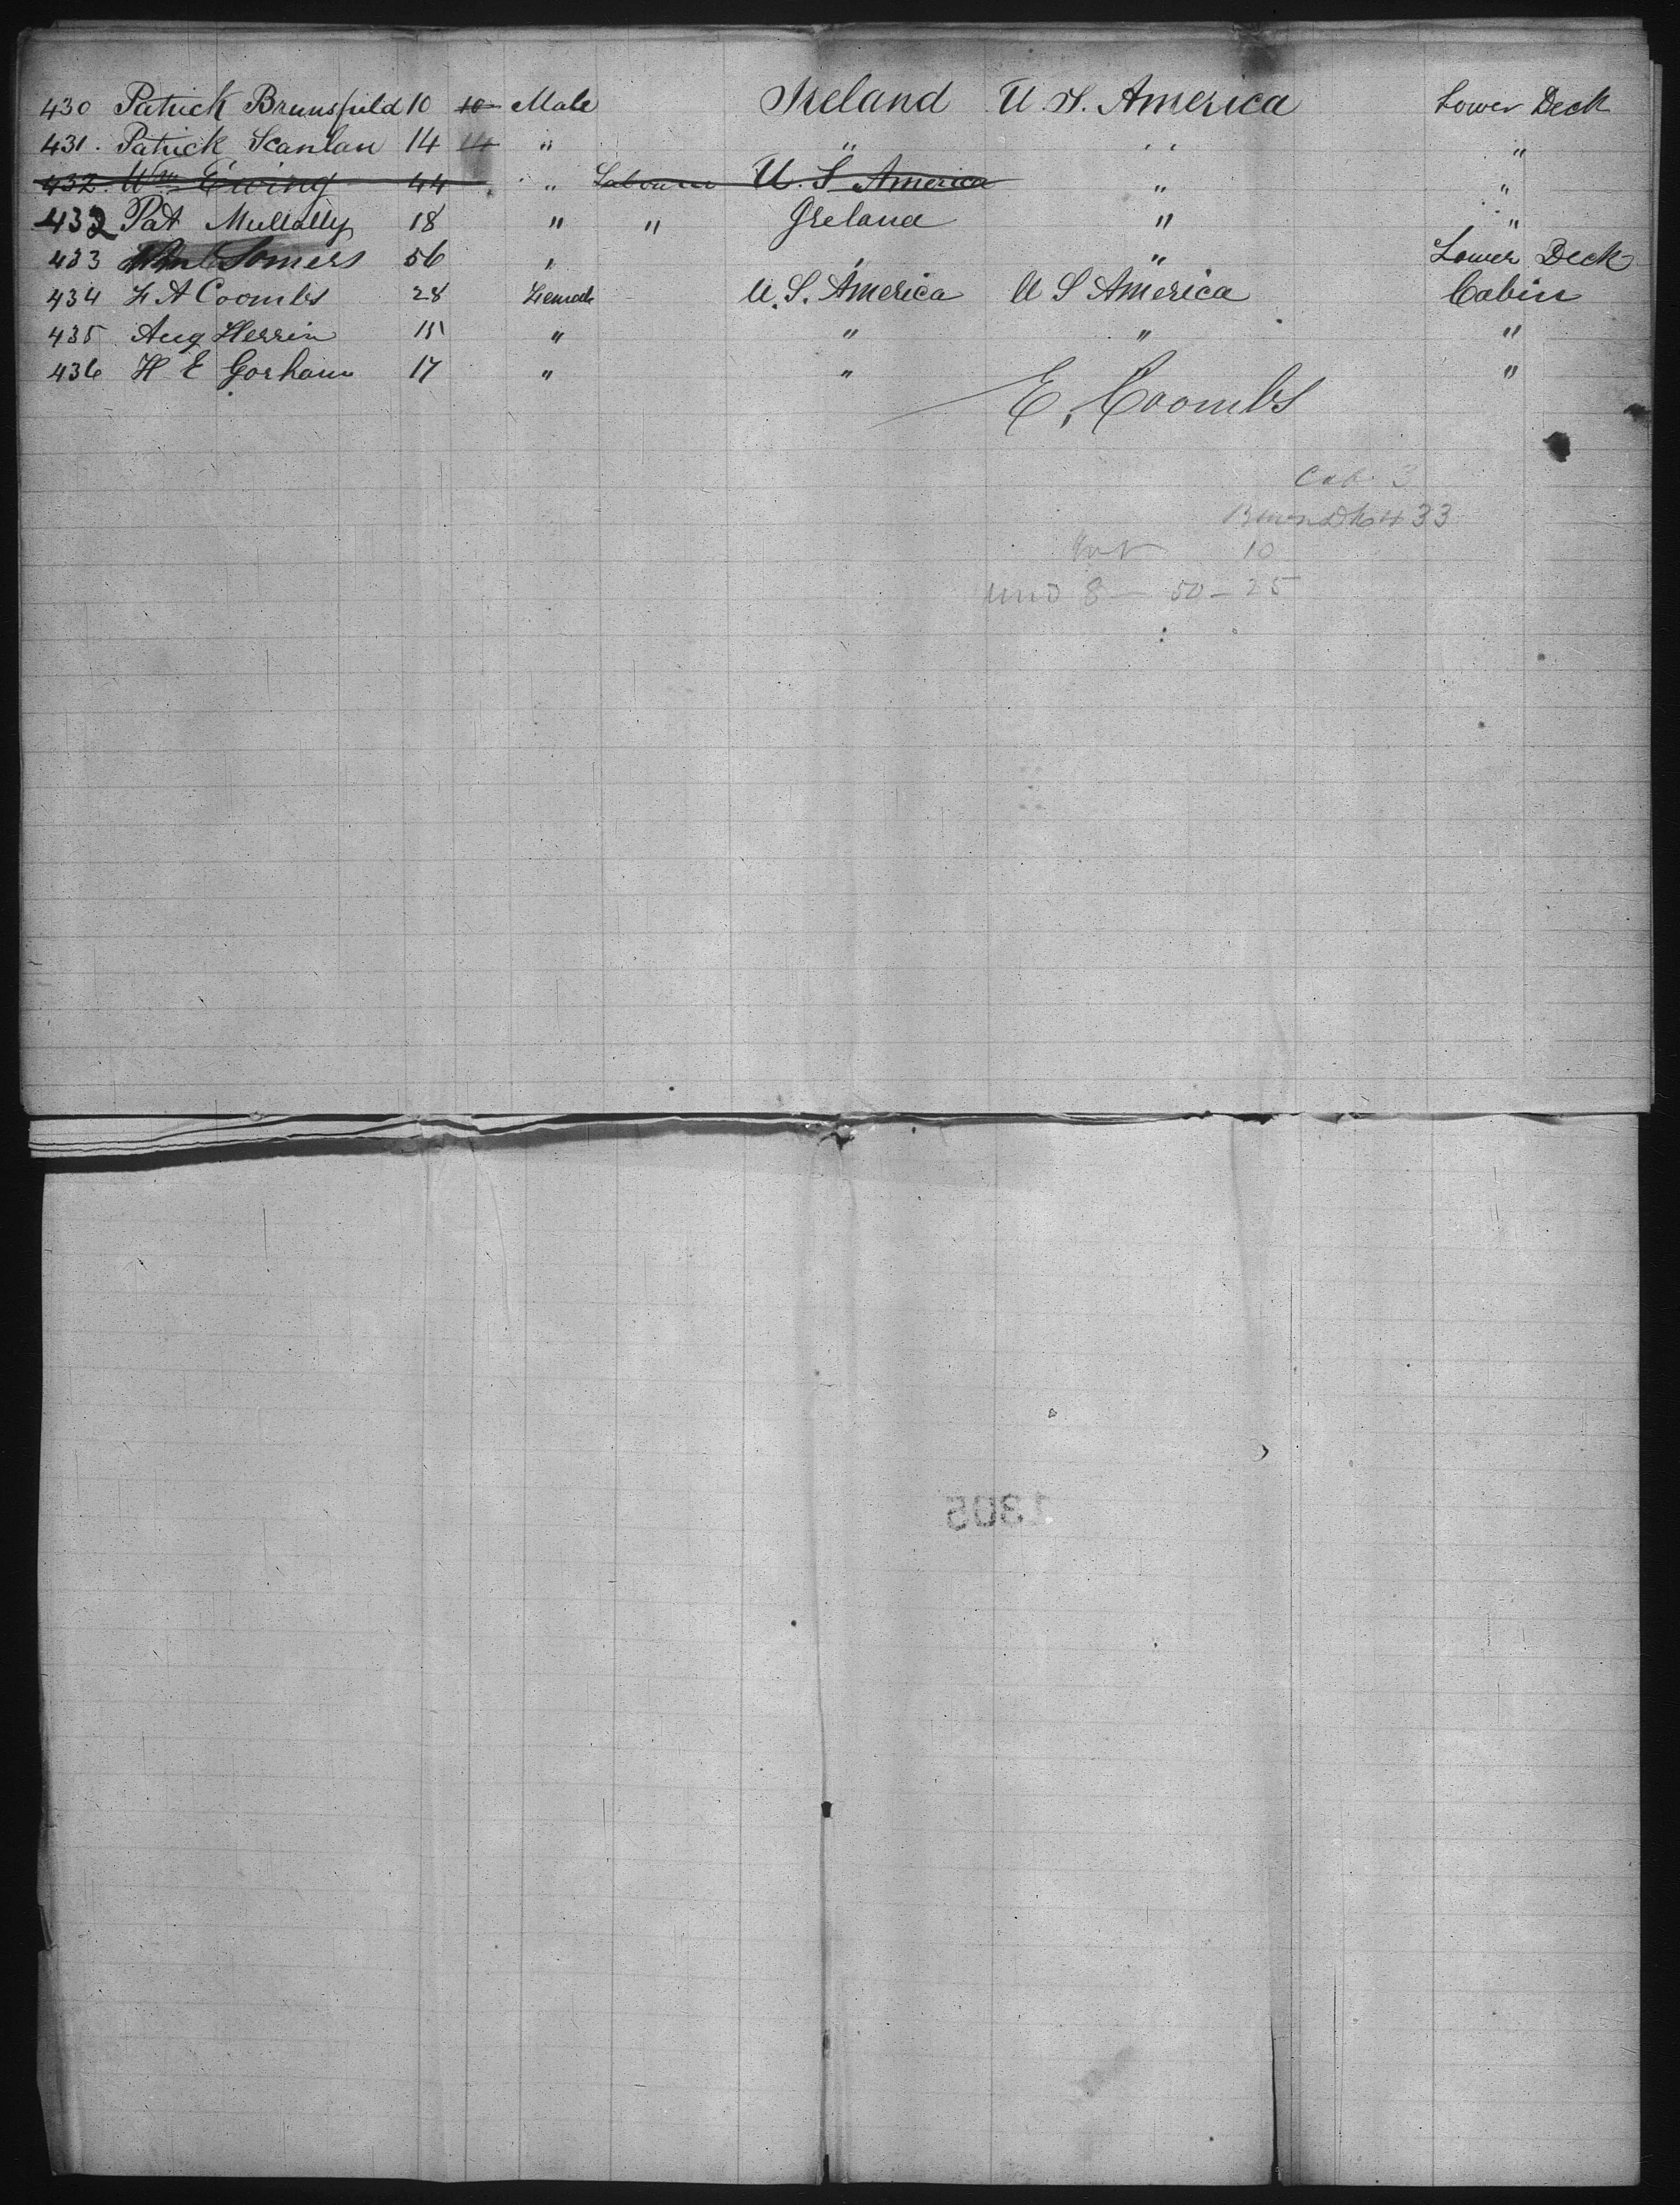 430 Patrick Brunsfield 10 10 Male Ireland U. S. America Lower Deck
431. Patrick Scanlan 14 14 " " " "
432. Wm Ewing 44 " Labourer U. S America " "
432 Pat Mullally 18 " " Ireland " "
433 Somers 56 " " " Lower Deck
434 F A Coombs 28 Female U. S. America U S America Cabin
435 Aug Herrin " " " "
436 H E Gorham 17 " " " "
E. Coombs
Cab. 3
433
10
und 8 — 50 - 25
1305